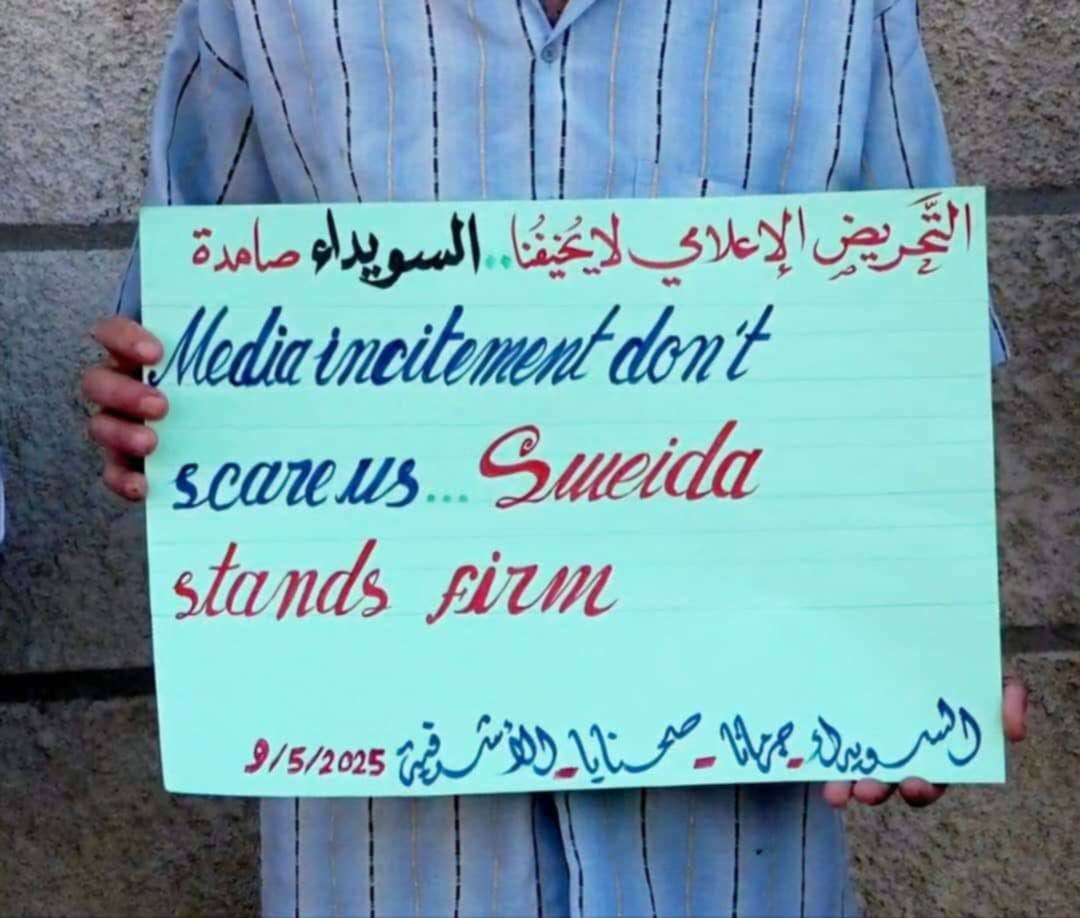 التَّحريض الإعلامي لا يُخيفُنا..السويداء صامدة
Media incitement don't
scare us... Sweida
stands firm
السويداء_جرمانا_صحنايا_الأشرفية 9/5/2025